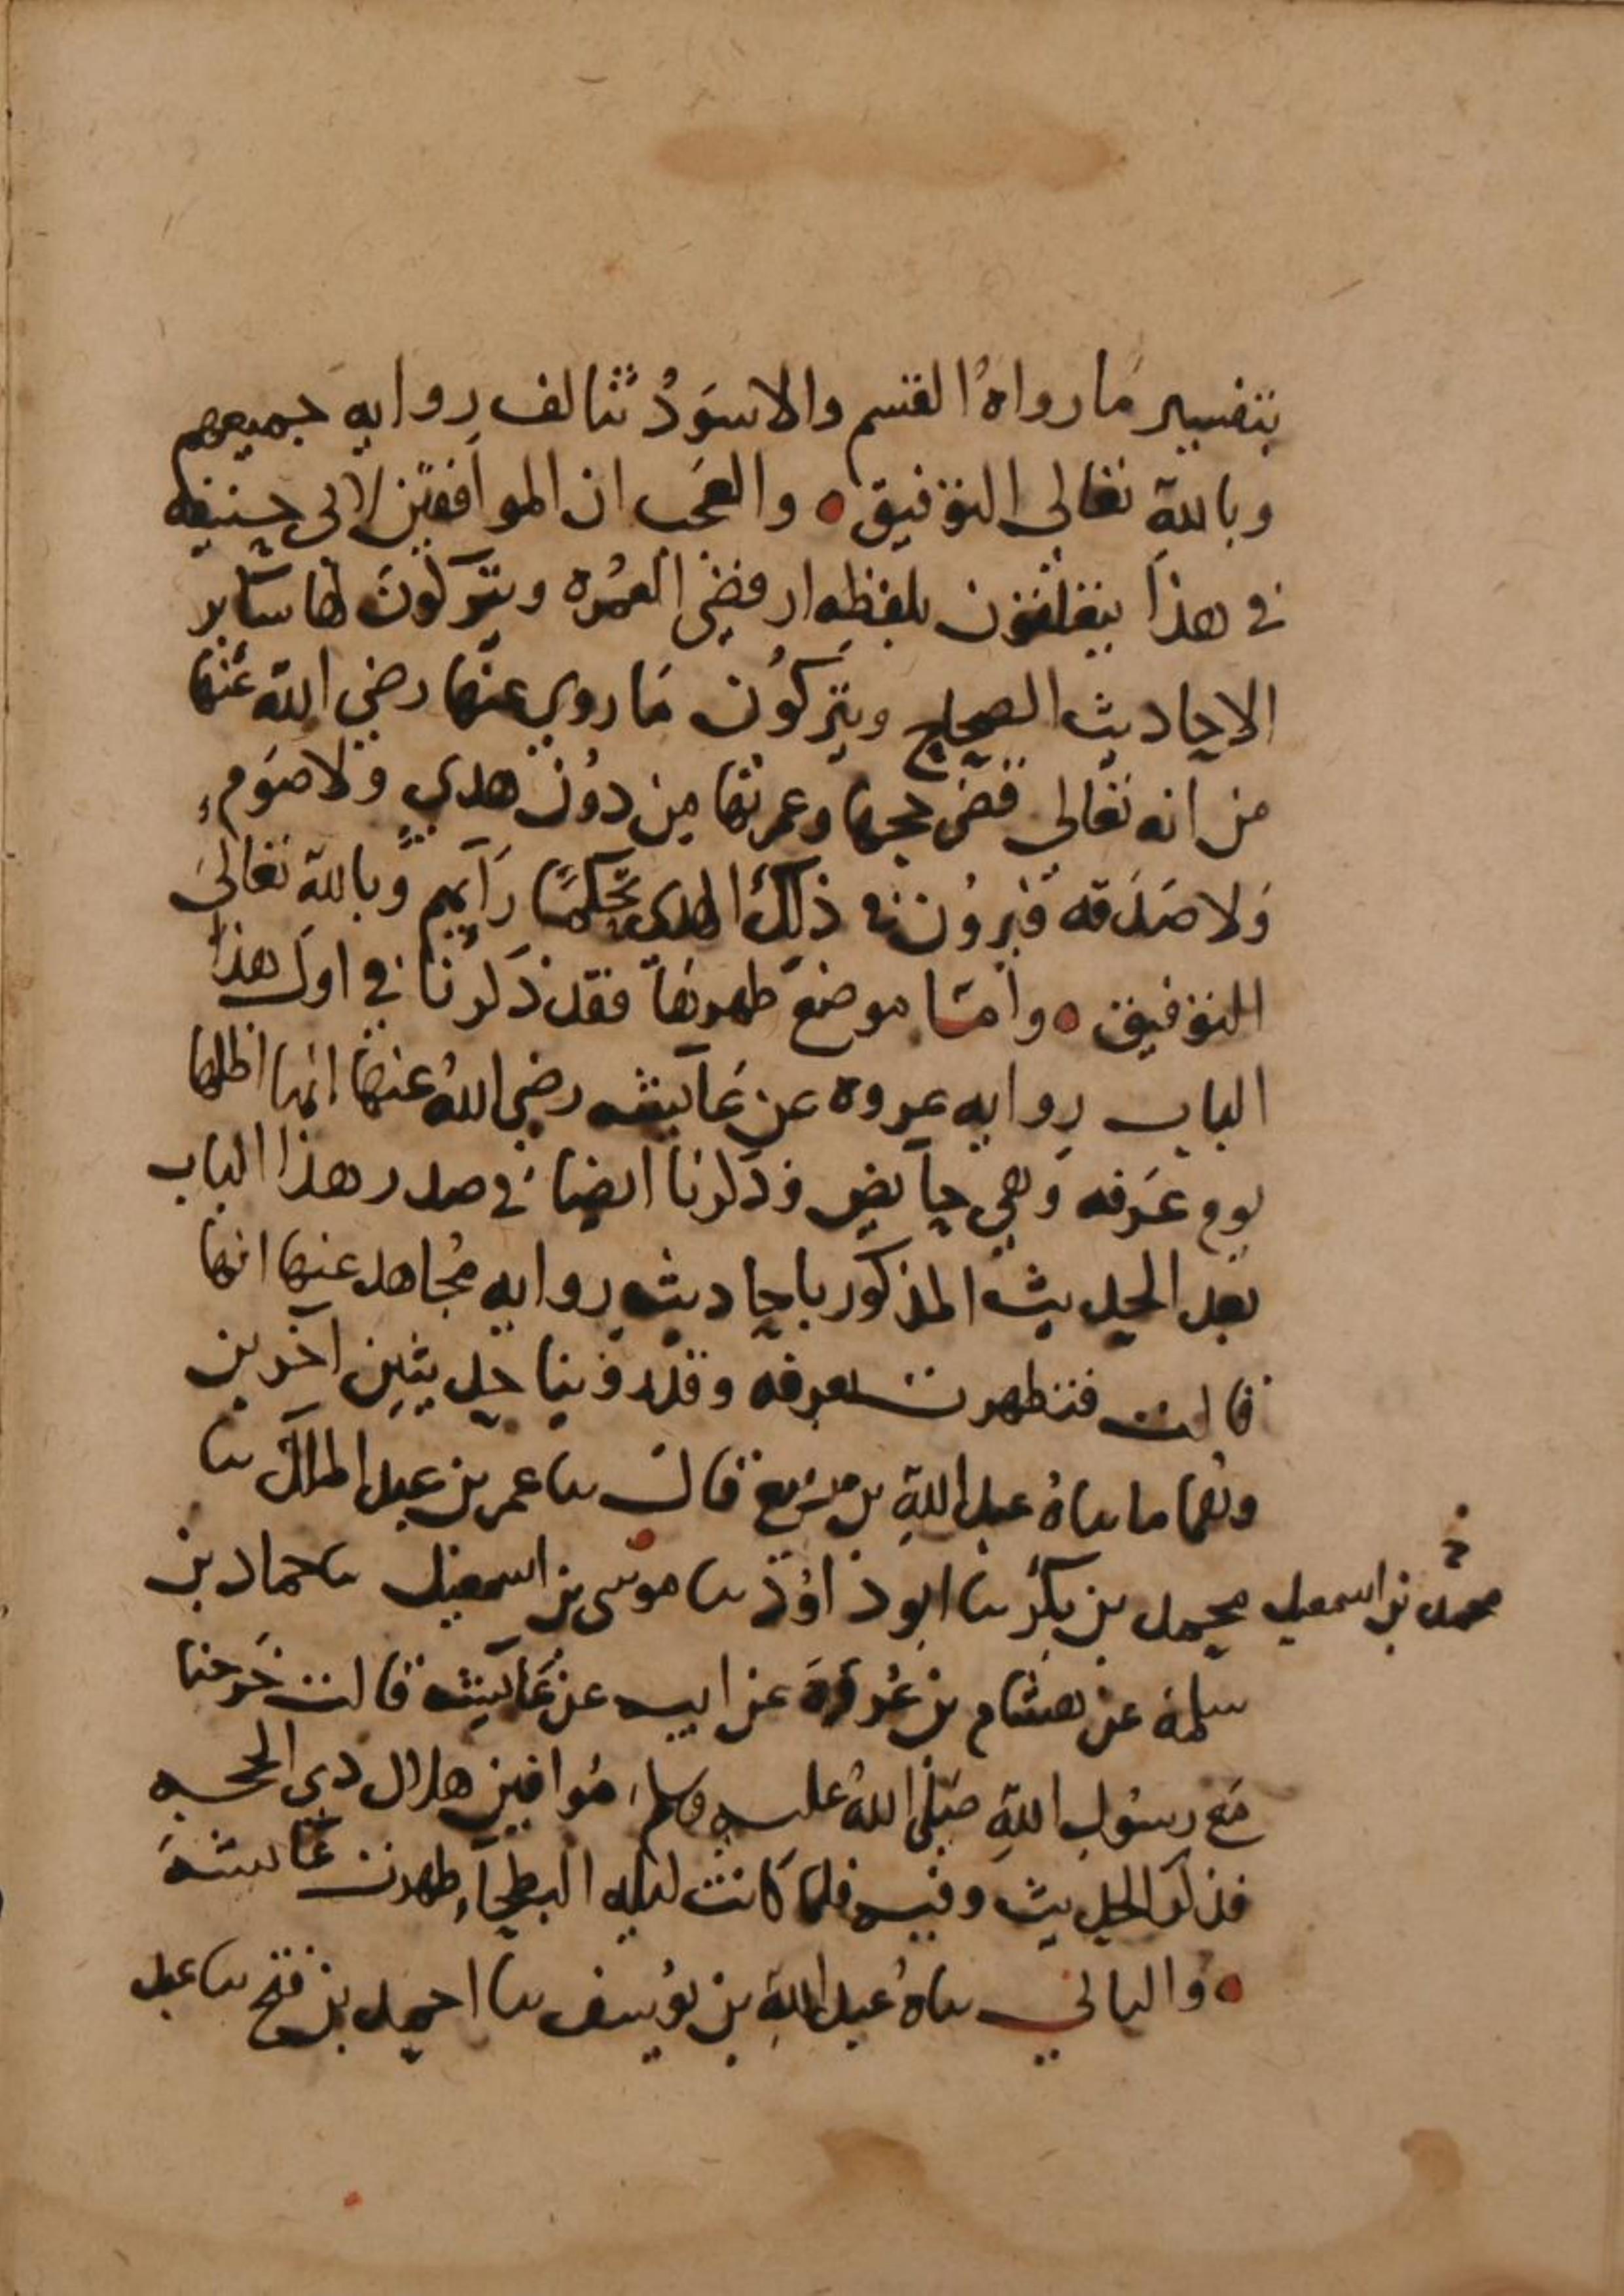 بتفسير ما رواه القسم والاسود تتالف روايه جميعهم
وبالله تعالى التوفيق ٥ والعجب ان الموافقين لابى حنيفه
في هذا يتعلقون بلفظه ارفضي العمره ويتركون لها ساير
الاحاديث الصحاح ويتركون ما روي عنها رضي الله عنها
من انه تعالى قضى حجها وعمرتها من دون هدي ولا صوم
ولا صدقه فيرون في ذلك الهدي تحكما رآيهم وبالله تعالى
التوفيق ٥ وأما موضع طهرتها فقد ذكرنا في اول هذا
الباب روايه عروه عن عآيشه رضي الله عنها انها اظلها
يوم عرفه وهي حآيض وذكرنا ايضا في صدر هذا الباب
بعد الحديث المذكور باحاديث روايه مجاهد عنها انها
قالت فتطهرت بعرفه وقد روينا حديثين آخرين
وهما ما ساه عبد الله بن ربيع قال سا عمر بن عبد الملك سا
محمد بن بكر سا ابو داود سا موسى بن اسمعيل سا حماد بن
محمد بن اسمعيل
سلمة عن هشام بن عروة عن ابيه عن عآيشة قالت خرجنا
مع رسول الله صلى الله عليه وسلم موافين هلال ذي الحجه
فذكر الحديث وفيه فلما كانت ليله البطحآء طهرت عايشة
٥ والثاني ساه عبد الله بن يوسف سا احمد بن فتح سا عبد